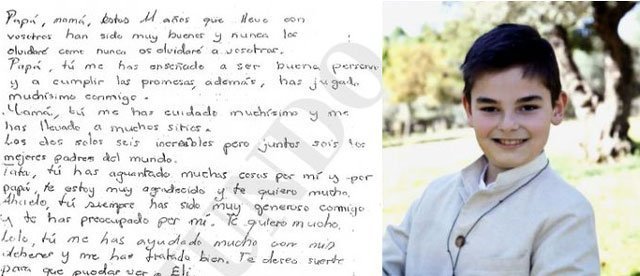 Papá, mamá, estos 11 años que llevo con
vosotros han sido muy buenos y nunca los
olvidaré como nunca os olvidaré a vosotros.
Papá, tú me has enseñado a ser buena persona
y a cumplir las promesas, además, has jugado
muchísimo conmigo.
Mamá, tú me has cuidado muchísimo y me
has llevado a muchos sitios.
Los dos solos seis increíbles pero juntos sois los
mejeres padres del mundo.
Tata, tú has aguantado muchas cosas por mí y por
papá, te estoy muy agradecido y te quiero mucho.
Abuelo, tú siempre has sido muy generoso conmigo
y te has preocupado por mí. Te quiero mucho.
Lolo, tú me has ayudado mucho con mis
deberes y me has tratado bien. Te deseo suerte
para que puedas ver a Eli